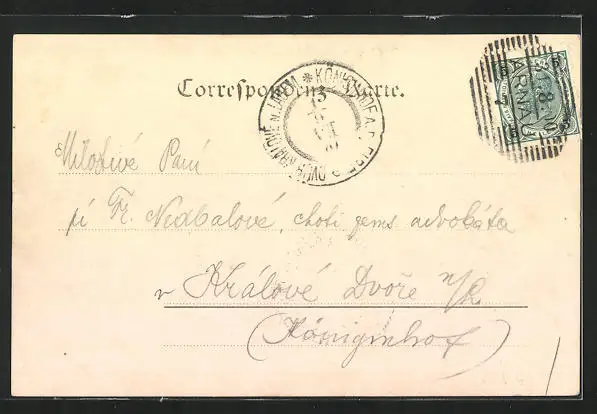 Correspondenz-Karte.
KÖNIGINHOF A.D. ELBE * DVŮR KRÁLOVÉ N. LABEM
ARNA
5 5
5 5
Milostivé Paní
pí Fr. Nedbalové, choti zems advokáta
v Králové Dvoře n/L
(Königinhof)